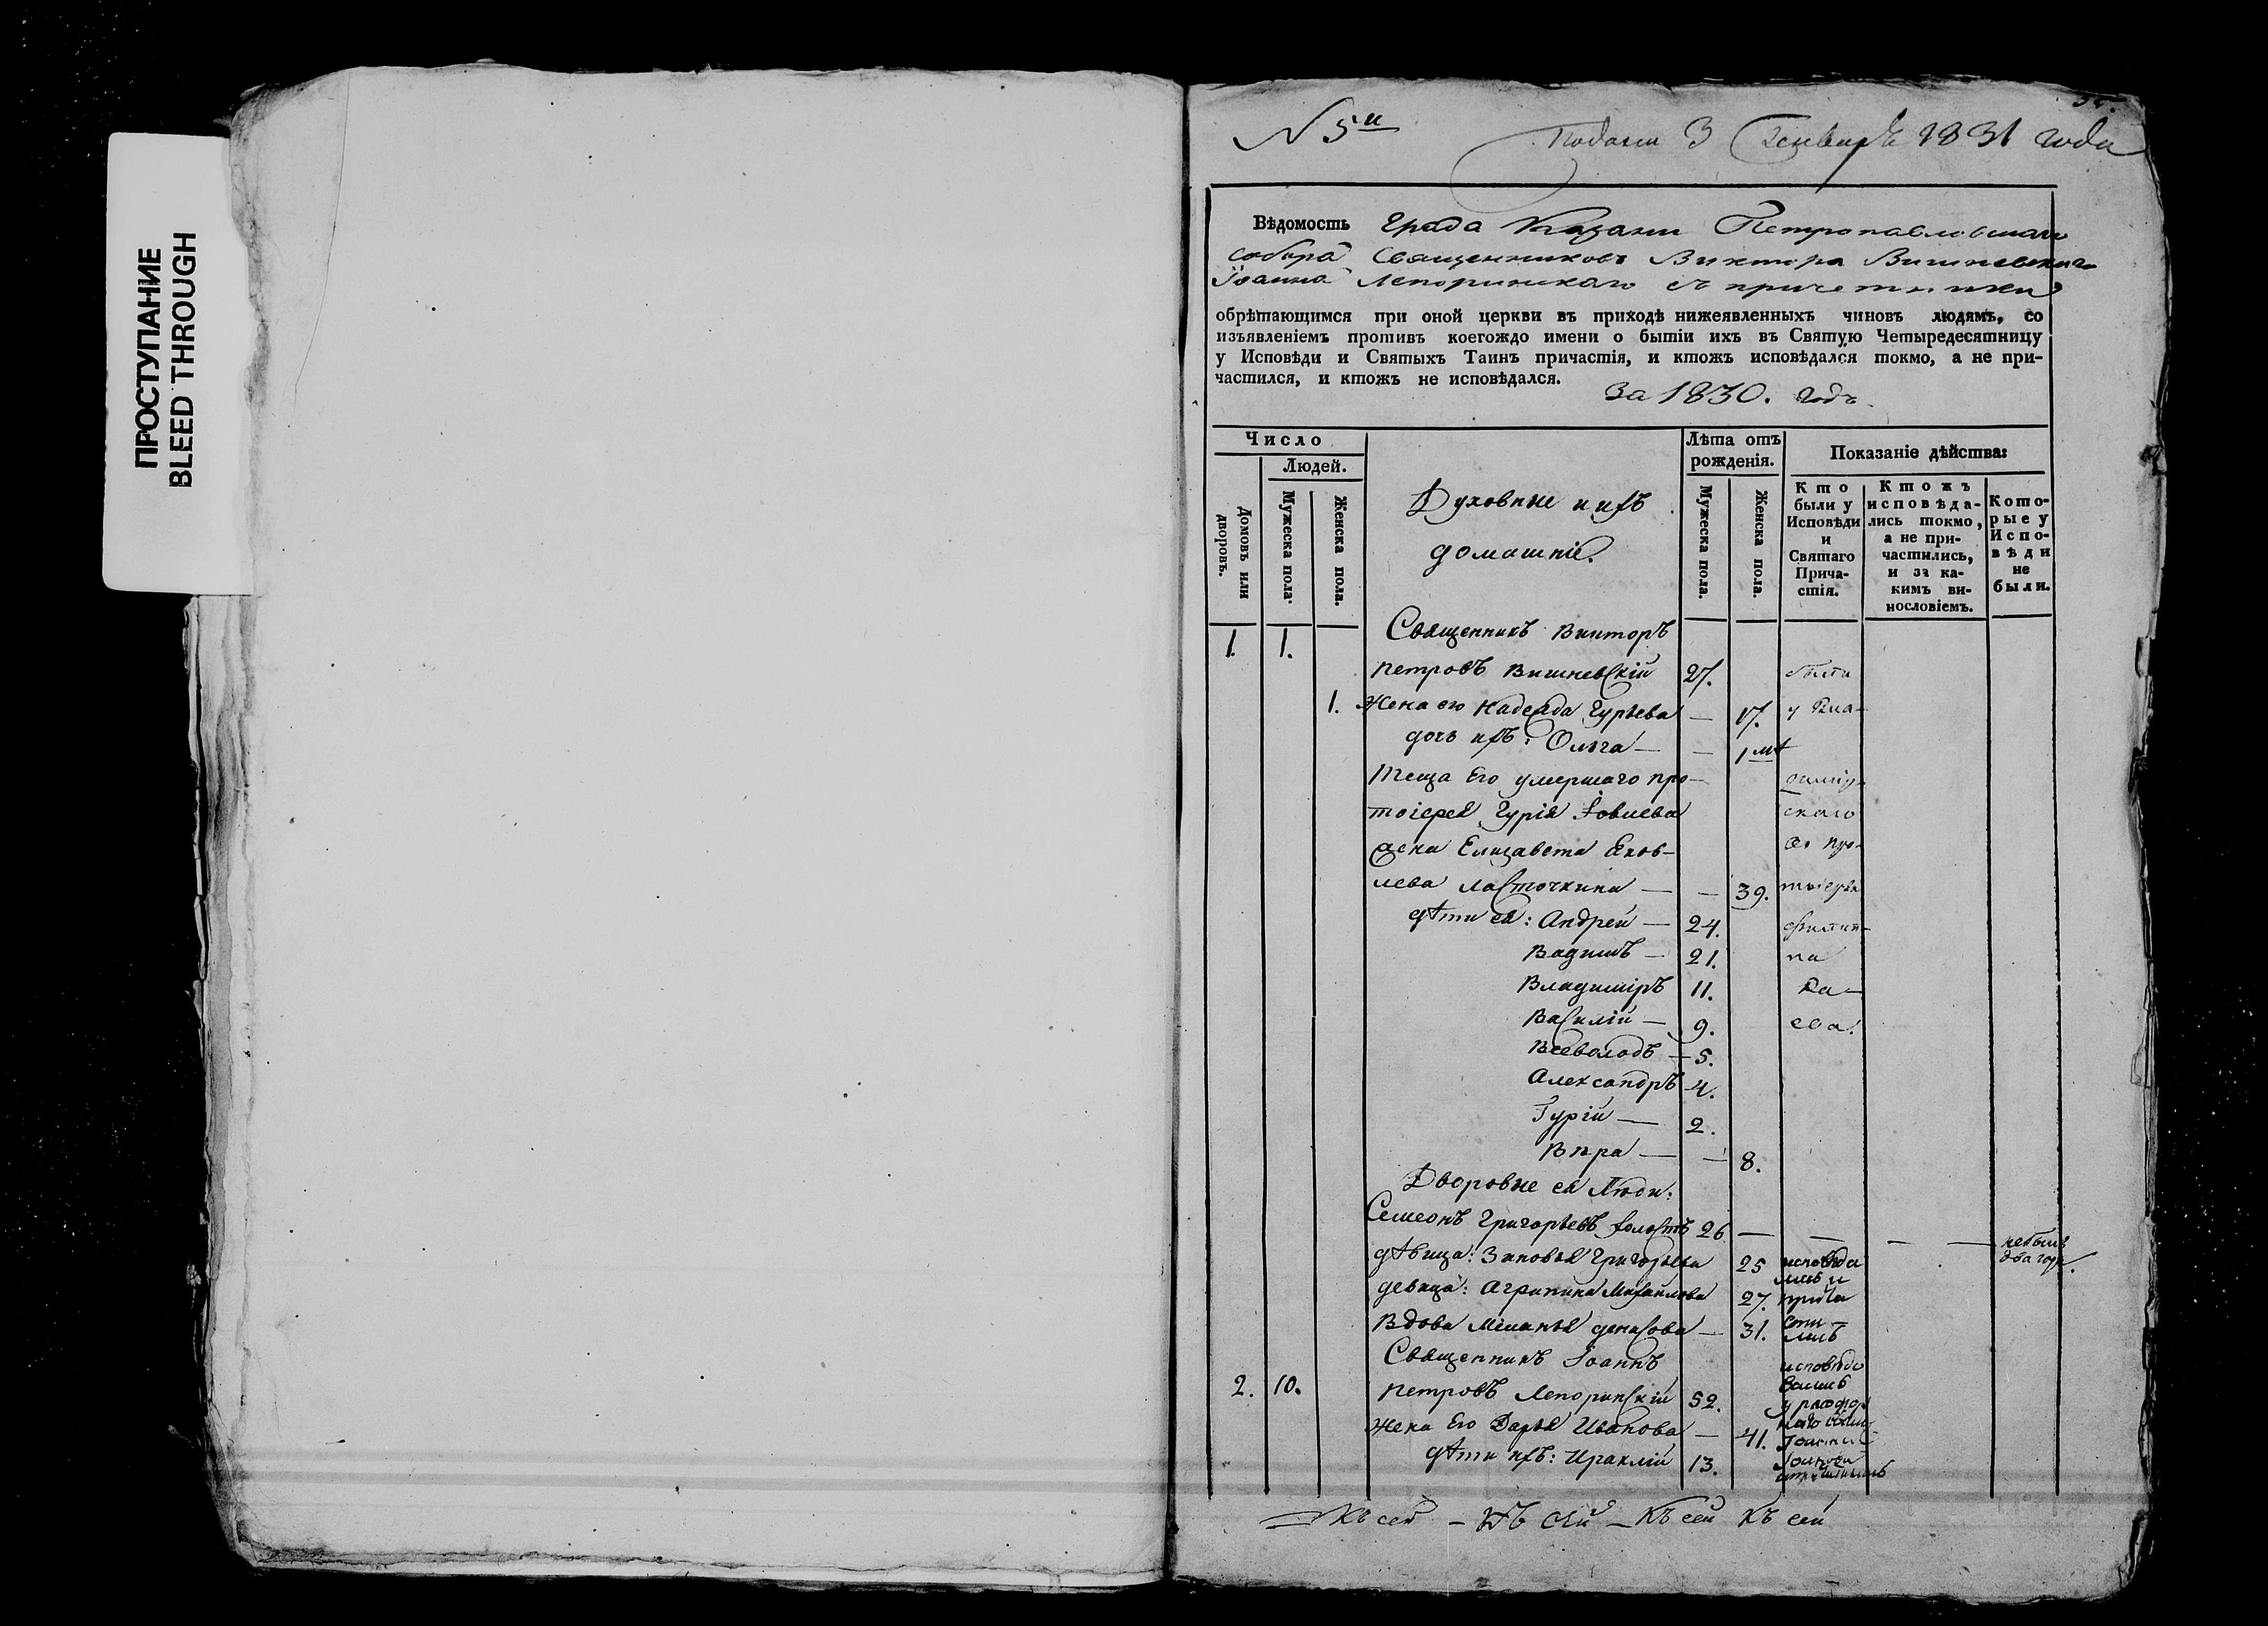 ПРОСТУПАНИЕ
BLEED THROUGH
N 5й
Подана 3 Генваря 1831 года
Вѣдомость Града Казани Петропавловскаго
собора Священниковъ Виктора Вишневскаго
Іоанна Лепоринскаго съ причетники
обрѣтающимся при оной церкви въ приходѣ нижеявленныхъ чиновъ людямъ, со
изъявленіемъ противъ коегождо имени о бытіи ихъ въ Святую Четыредесятницу
у Исповѣди и Святыхъ Таинъ причастія, и ктожъ исповѣдался токмо, а не при-
частился, и ктожъ не исповѣдался.
За 1830. годъ.
Число
Людей.
Домовъ или дворовъ.
Мужеска пола.
Женска пола.
Духовные и ихъ
домашніе.
Лѣта отъ
рожденія.
Мужеска пола.
Женска пола.
Показаніе дѣйства:
Кто
были у
Исповѣди
и
Святаго
Прича-
стія.
Ктожъ
исповѣда-
лись токмо,
а не при-
частились,
и за ка-
кимъ ви-
нословіемъ.
Кото-
рые у
Испо-
вѣди
не
были.
1. 1. Священникъ Викторъ
Петровъ Вишневскій 27. были
1. Жена его Надежда Гурьева — 17. у
дочь ихъ: Ольга — — 1 м
Теща Его умершаго про-
тоіерея Гурія Іовлева скаго
жена Елизавета Яков- про-
лева Ласточкина — — 39. тоіерея
дѣти ея: Андрей — 24.
Вадимъ — 21. па
Владиміръ 11.
Василій — 9. ева.
Всеволодъ — 5.
Александръ 4.
Гурій — 2.
Вѣра — — 8.
Дворовые ея Люди:
Семеонъ Григорьевъ холостъ 26 — — — — не былъ
два года.
дѣвица: Зиновья Григорьева 25 исповѣда
лись и
девица: Агрипина Михайлова 27. прича
Вдова Меланья Денисова — 31. сти
лись
Священникъ Іоаннъ исповѣдо
2. 10. Петровъ Лепоринскій 52. вались
Жена Его Дарья Иванова — 41.
дѣти ихъ: Ираклій 13.
Къ сей — Къ сей — Къ сей Къ сей